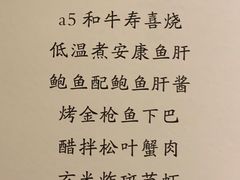 a5和牛寿喜烧
低温煮安康鱼肝
鲍鱼配鲍鱼肝酱
烤金枪鱼下巴
醋拌松叶蟹肉
玄米炸斑节虾